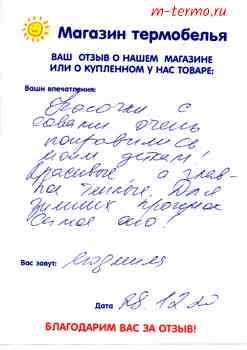 m-termo.ru
Магазин термобелья
ВАШ ОТЗЫВ О НАШЕМ МАГАЗИНЕ
ИЛИ О КУПЛЕННОМ У НАС ТОВАРЕ:
Ваши впечатления:
с
совами очень
понравились
моим детям!
Красивые, а глав-
ное тёплые. Для
зимних прогулок
самое оно!
Вас зовут: Людмила
Дата 28.12.20
БЛАГОДАРИМ ВАС ЗА ОТЗЫВ!